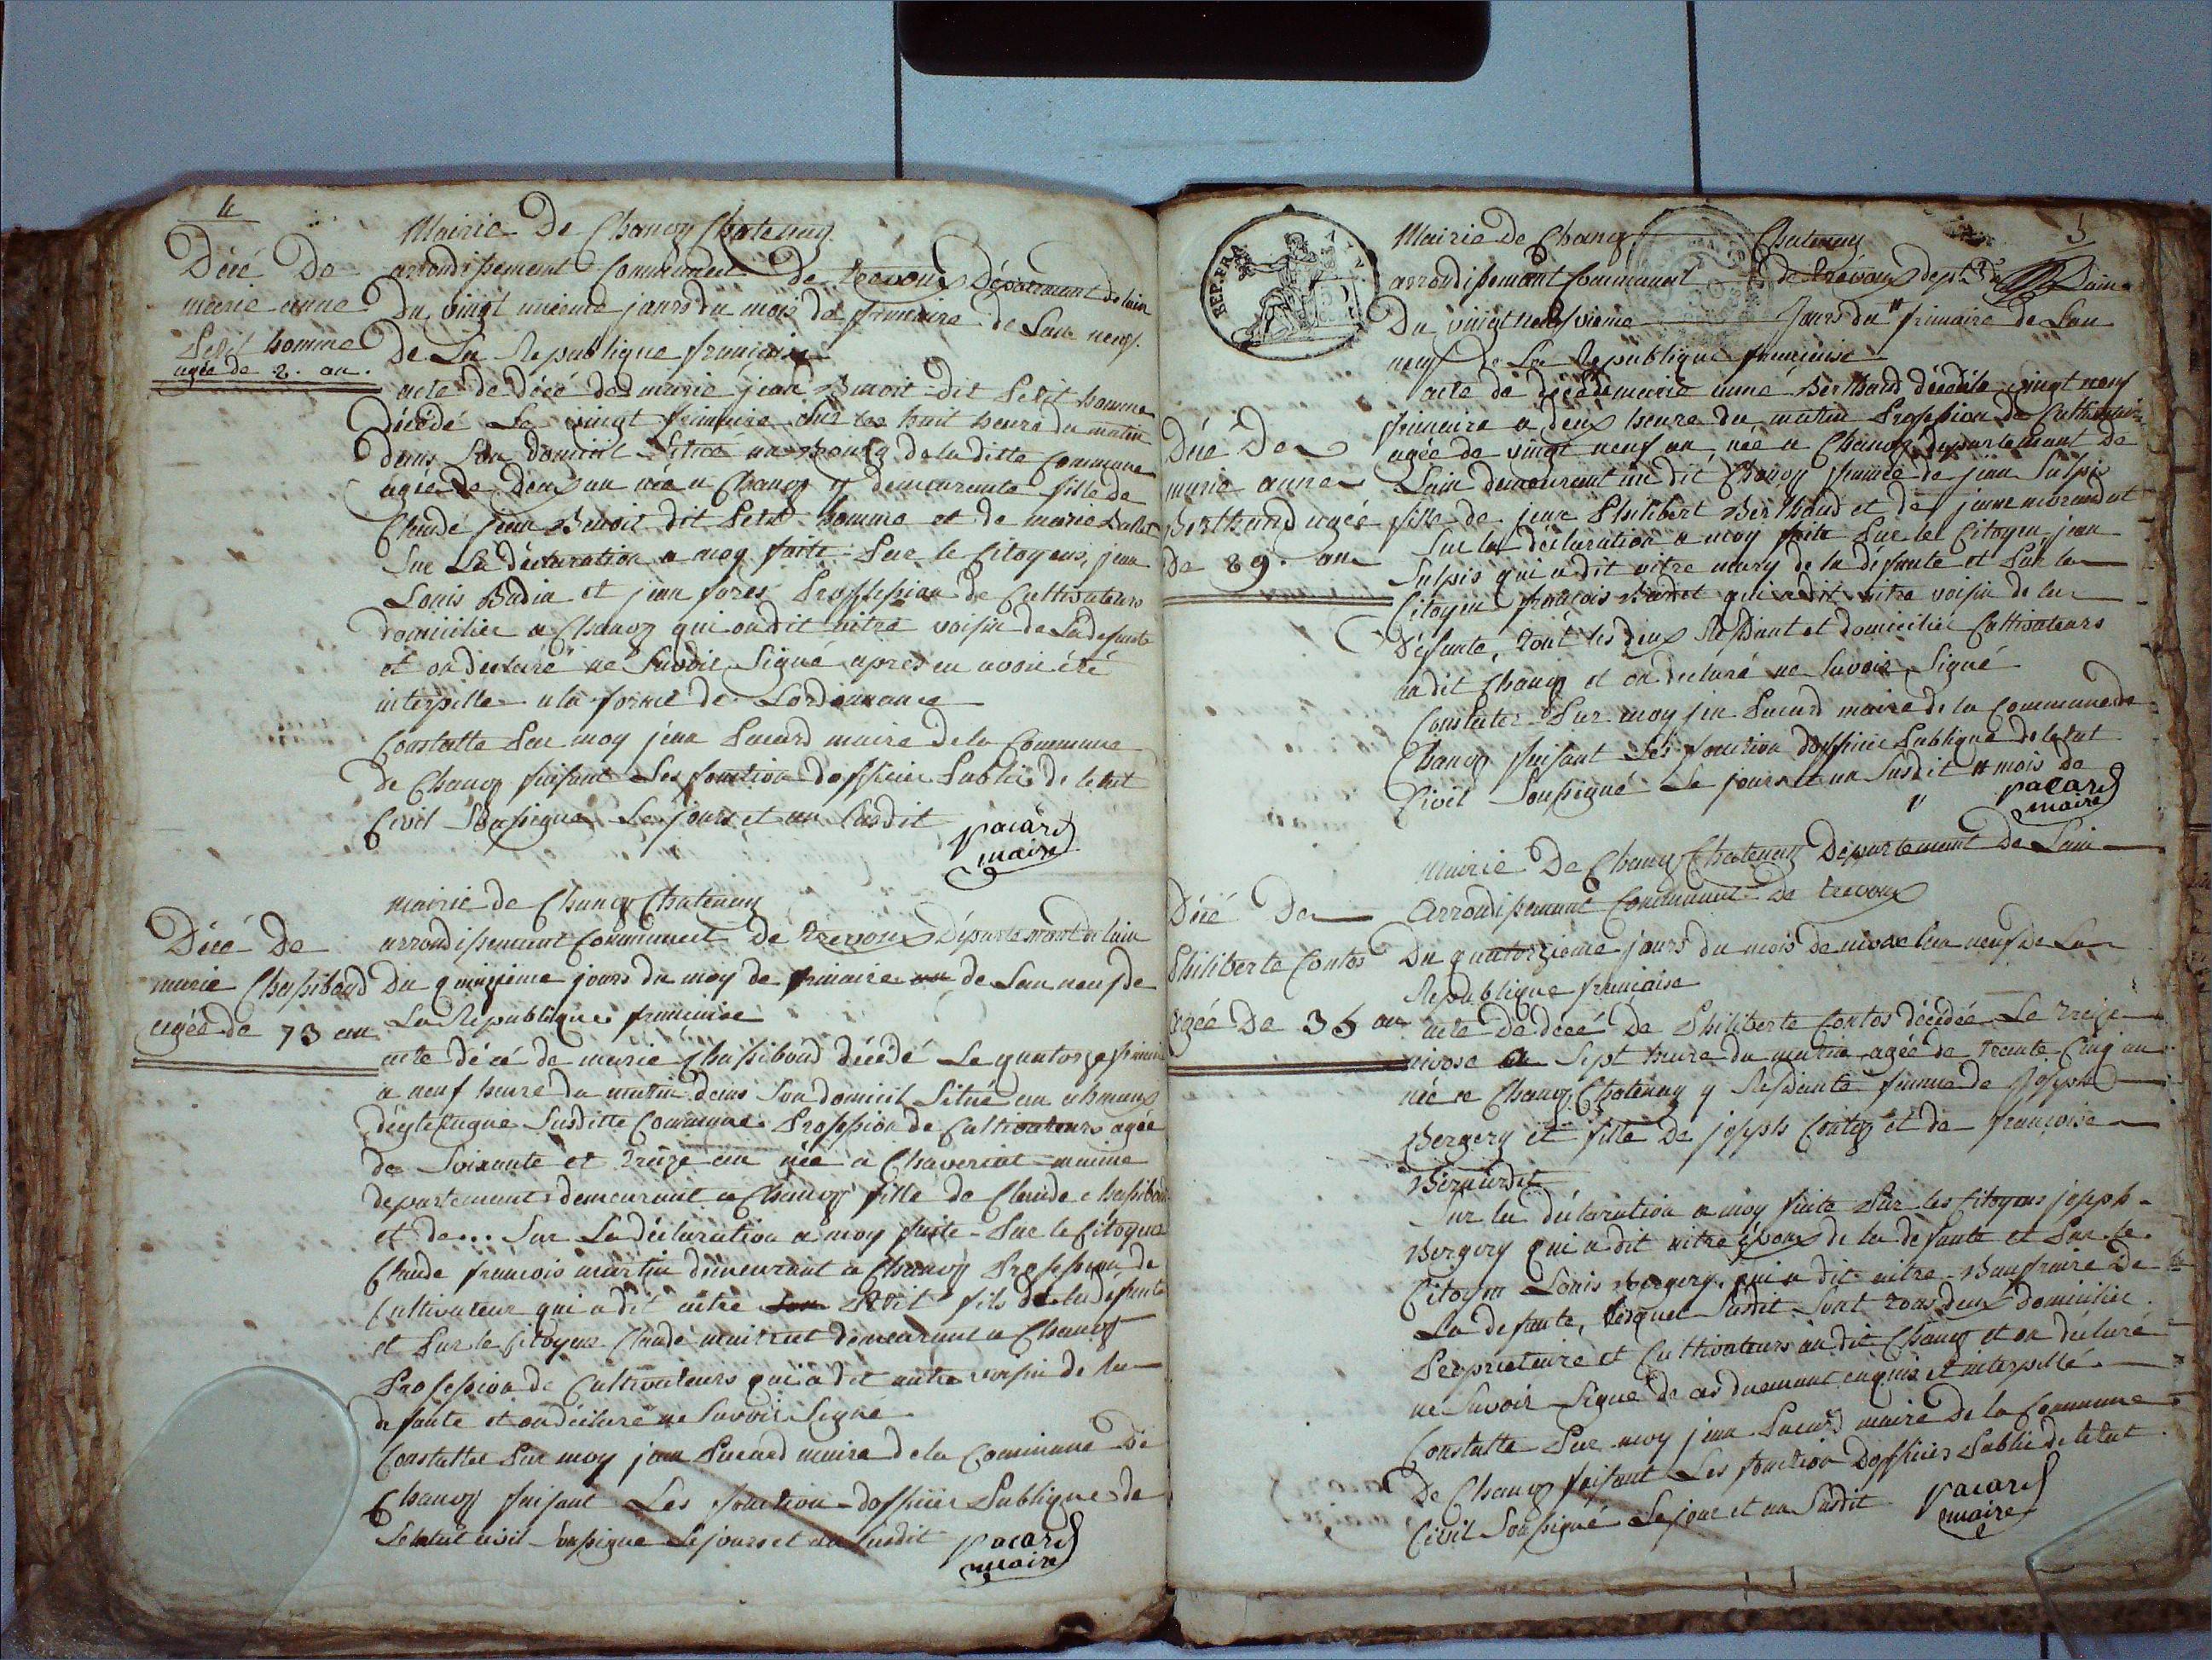 4
Mairie De Chanoz Chatenay
Décé De
marie anne
Petit homme
agée de 2. an.
arrondissement Communest de trevoux Département de lain
Du vingt unieme jours du mois de frimaire de Lan neuf
De La Republique francaise
acte de Décé de marie jean Benoit dit Petit homme
décédé Le vingt frimaire sur les huit heure du matin
dans Son domicil Situé au bourg de la ditte Commune
agée de Deux an née a Chanoz y demeurante fille de
Claude jean Benoit dit Petit homme et de marie
Sur La déclaration a moy faite Par le Citoyens, jean
Louis Badin et jean forés Proffession de Cultivateurs
domicilier a Chanoz qui on dit aitre voisin de La defunte
et on declaré ne Savoir Signé apres en avoir été
interpelle a la forme de Lordonnance
Constatte Par moy jean Pacard maire de la Commune
de Chanoz faisant Les fonction dofficier Public de letat
Civil Soussigné Le jours et an Susdit
pacard
maire
mairie de Chanoz Chatenay
Décé De
marie Chassiboud
agée de 73 an
arrondissement Communest De trevoux Département de lain
Du quinzieme jours du moy de frimaire de Lan neuf de
La Republique francaise
acte décé de marie Chassiboud décédé Le quatorze frimaire
a neuf heure du matin dans Son domicil Situé au
Susditte Commune Profession de Cultivateurs agée
de Soixante et treize an née a Chaveriat maime
departement demeurant a Chanoz fille de Claude Chassiboud
et de... Sur La déclaration a moy faite Par le Citoyen
Claude francois martin demeurant a Chanoz Profession de
Cultivateur qui a dit aitre Petit fils de la défunte
et Par le Citoyens Claude demeurant a Chanoz
Profession de Cultivateurs qui a dit aitre voisin de la
defunte et on déclaré ne Savoir Signé
Constattee Par moy jean Pacard maire de la Commune De
Chanoz faisant Les fonction dofficier Publique de
Letat civil Soussigne Le jours et an Susdit
pacard
maire
5
REP. FRA.
Mairie de Chanoz Chatenay
arrondissement Communest de trevoux dept. De Lain
Du vingt neufvieme Jours du frimaire de Lan
neuf De La Republique francaise
Décé De
marie anne
Berthaud agée
De 29. an
acte de décé de marie anne Berthaud décédé le vingt neuf
frimaire a deux heure du matin Profession de Cultivateur
agée de vingt neuf an, née a Chanoz departement de
Lain demeurant au dit Chanoz femme de jean Sulpis
fille de jean Philibert Berthaud et de jeanne
Sur la déclaration a moy faite Par le Citoyen jean
Sulpis qui a dit aitre mary de la défunte et Par le
Citoyen francois qui a dit aitre voisin de la
Défunte, tout les deux Residant et domicilier Cultivateurs
au dit Chanoz et on declaré ne Savoir Signé
Constater Par moy jean Pacard maire de la Commune de
Chanoz faisant Les fonction dofficier Publique de letat
Civil Soussigné Le jours et an Susdit mois de
pacard
maire
Mairie De Chanoz Chatenay Departement De Lain
Décé De
Philiberte Contos
agée De 35 an
Arrondissement Communest De trevoux
Du quatorzieme jours du mois de nivose lan neuf de La
Republique francaise
acte De décé De Philiberte Contos décédée Le treize
nivose a Sept heure du matin agée de trente Cinq an
née a Chanoz Chatenay y Residante femme de Joseph
Bergery et fille De joseph Contos et de francoise
Bernardit
Sur la déclaration a moy faite Par les Citoyens joseph
Bergery qui a dit aitre époux de la defunte et Par le
Citoyen Louis Bergery, qui a dit aitre Baufraire De
La defunte, lesquel Susdit Sont tous deux domicilier
Proprietaire et Cultivateurs au dit Chanoz et on déclaré
ne Savoir Signe de ce duement enquis et interpellé
Constatte Par moy jean Pacard maire De la Commune
De Chanoz faisant Les fonction Dofficier Public de letat
Civil Soussigné Le jour et an Susdit
pacard
maire